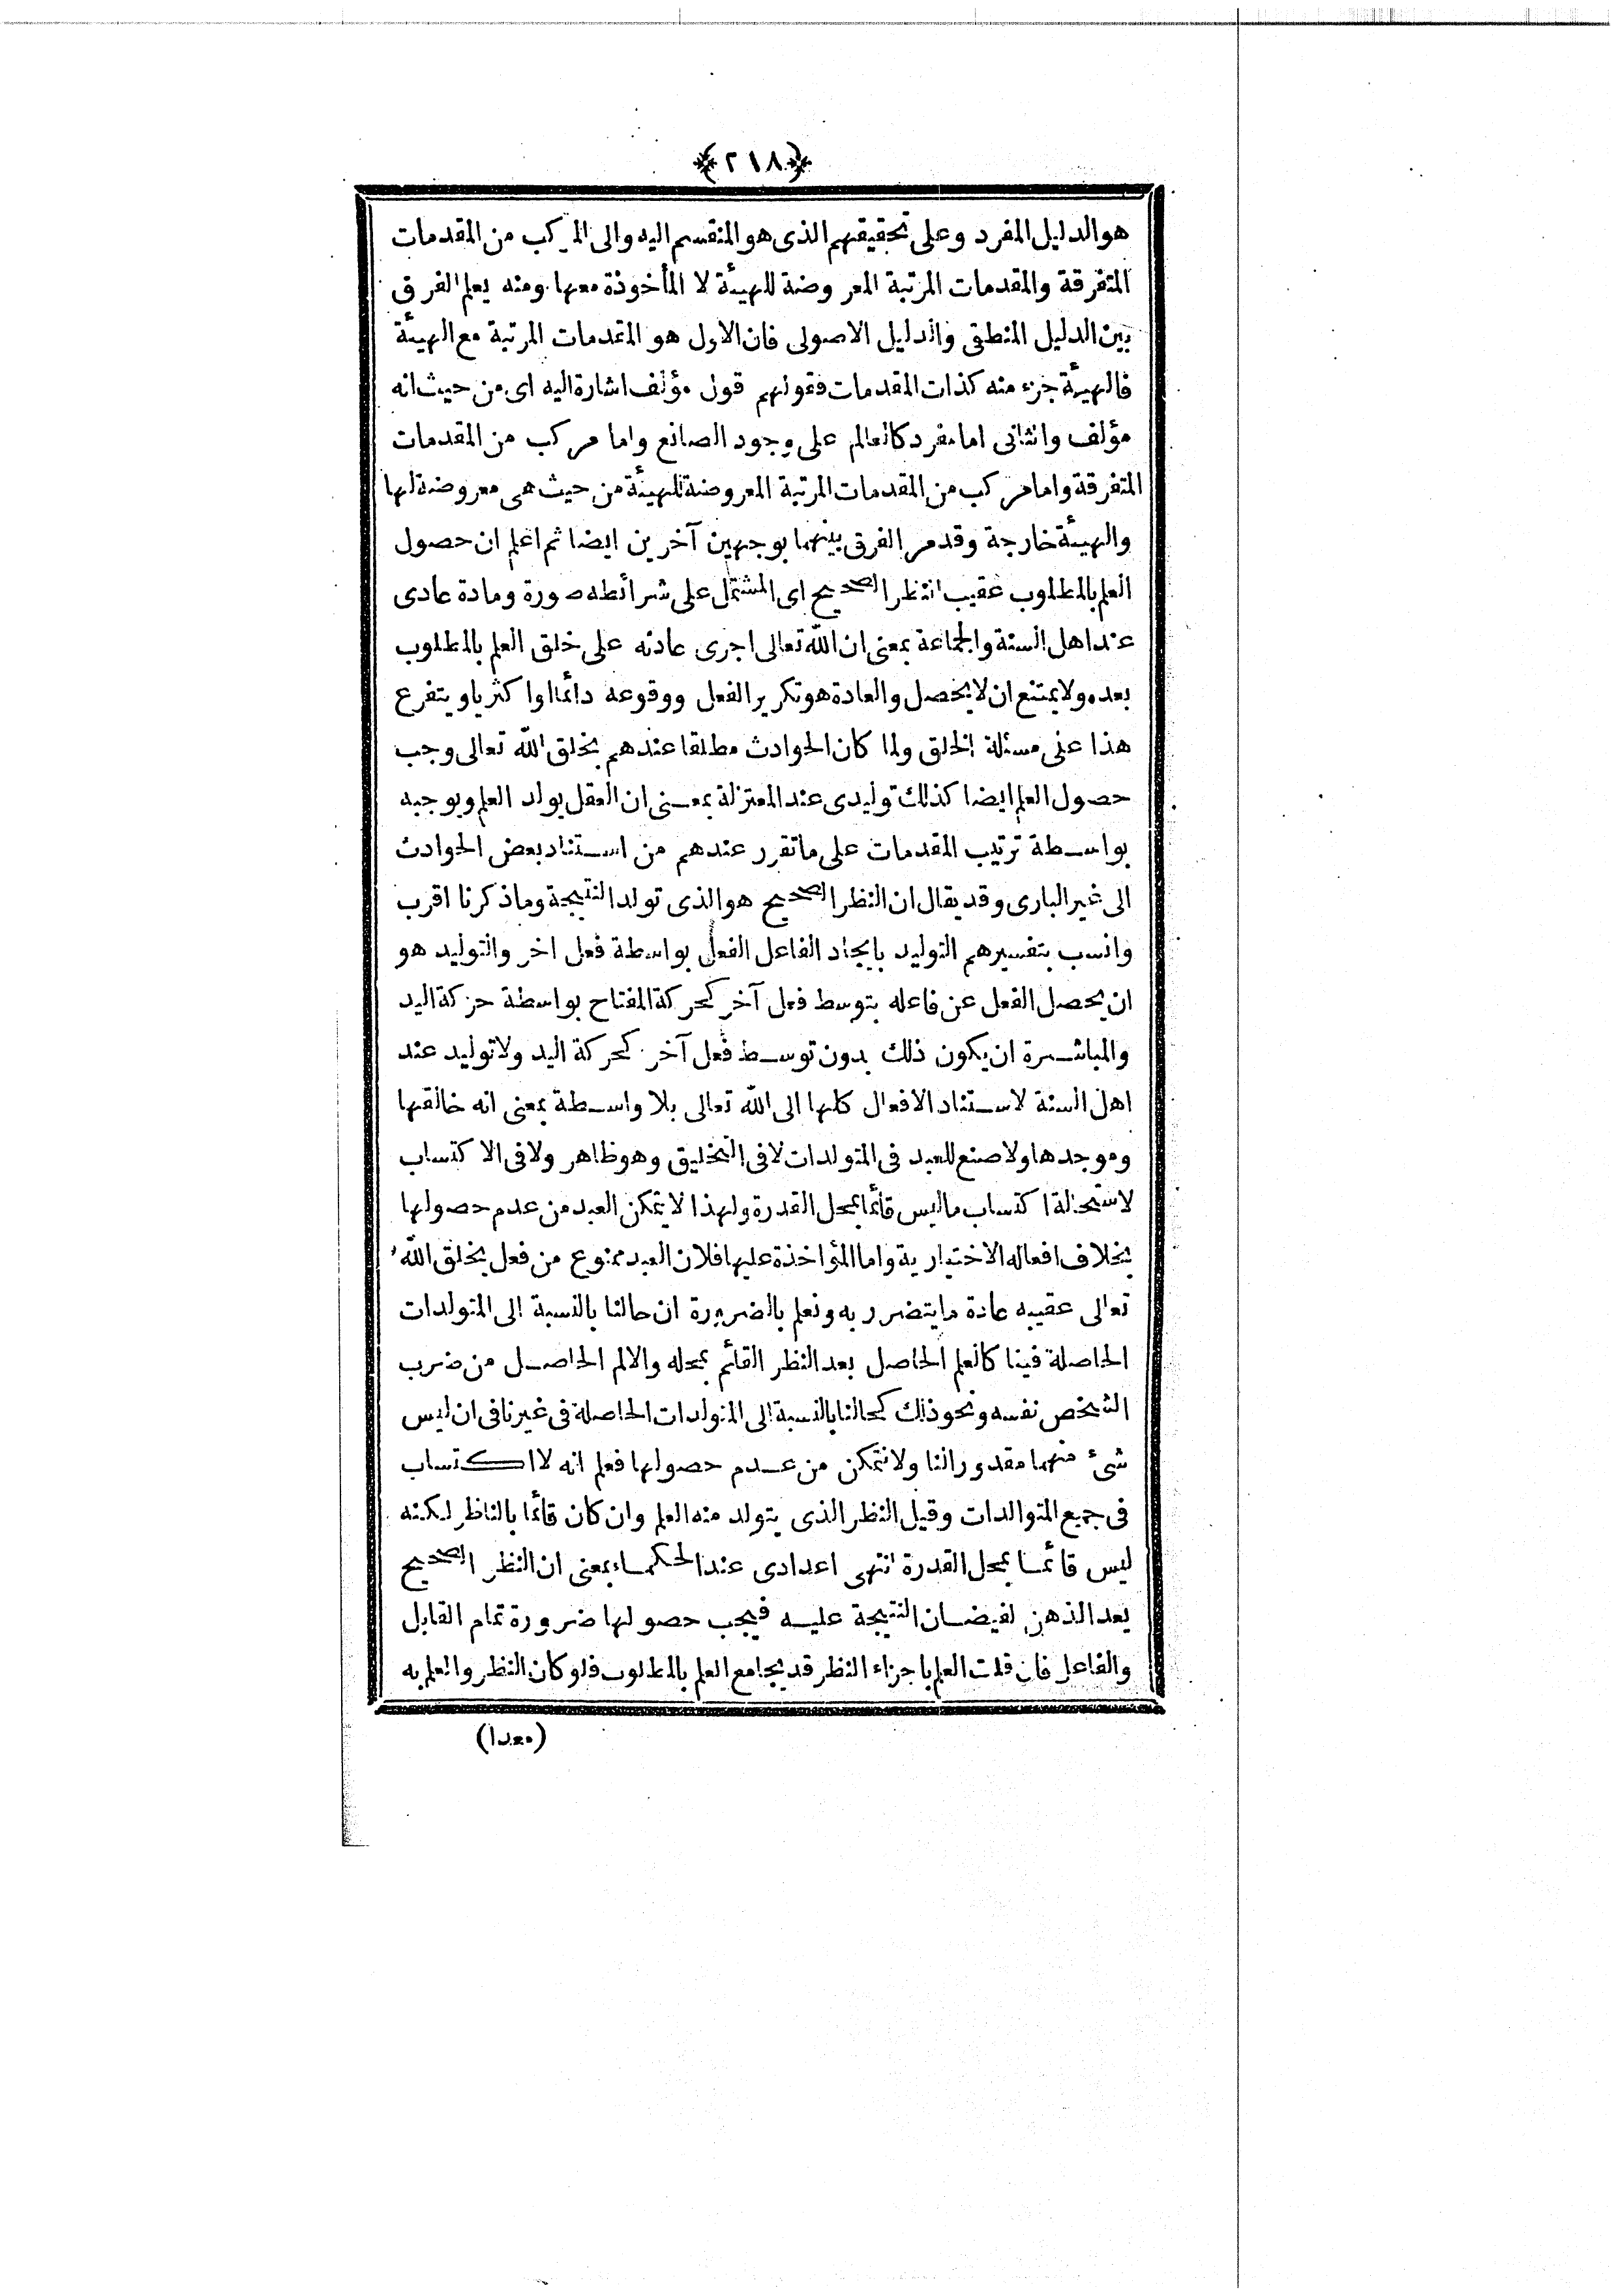 ﴿٢١٨﴾
هو الدليل المفرد وعلى تحقيقهم الذى هو المنقسم اليه والى المركب من المقدمات
المتفرقة والمقدمات المرتبة المعروضة للهيئة لا المأخوذة معها ومنه يعلم الفرق
بين الدليل المنطقى والدليل الاصولى فان الاول هو المقدمات المرتبة مع الهيئة
فالهيئة جزء منه كذات المقدمات فقولهم قول مؤلف اشارة اليه اى من حيث انه
مؤلف والثانى اما مفرد كالعالم على وجود الصانع واما مركب من المقدمات
المتفرقة واما مركب من المقدمات المرتبة المعروضة للهيئة من حيث هى معروضة لها
والهيئة خارجة وقد مر الفرق بينهما بوجهين آخرين ايضا ثم اعلم ان حصول
العلم بالمطلوب عقيب النظر الصحيح اى المشتمل على شرائطه صورة ومادة عادى
عند اهل السنة والجماعة بمعنى ان الله تعالى اجرى عادته على خلق العلم بالمطلوب
بعده ولا يمتنع ان لا يحصل والعادة هو تكرير الفعل ووقوعه دائما او اكثريا ويتفرع
هذا على مسئلة الخلق ولما كان الحوادث مطلقا عندهم بخلق الله تعالى وجب
حصول العلم ايضا كذلك توليدى عند المعتزلة بمعنى ان العقل يولد العلم ويوجبه
بواسطة ترتيب المقدمات على ما تقرر عندهم من استناد بعض الحوادث
الى غير البارى وقد يقال ان النظر الصحيح هو الذى تولد النتيجة وما ذكرنا اقرب
وانسب بتفسيرهم التوليد بايجاد الفاعل الفعل بواسطة فعل اخر والتوليد هو
ان يحصل الفعل عن فاعله بتوسط فعل آخر كحركة المفتاح بواسطة حركة اليد
والمباشرة ان يكون ذلك بدون توسط فعل آخر كحركة اليد ولا توليد عند
اهل السنة لاستناد الافعال كلها الى الله تعالى بلا واسطة بمعنى انه خالقها
وموجدها ولا صنع للعبد فى المتولدات لا فى التخليق وهو ظاهر ولا فى الاكتساب
لاستحالة اكتساب ما ليس قائما بمحل القدرة ولهذا لا يتمكن العبد من عدم حصولها
بخلاف افعاله الاختيارية واما المؤاخذة عليها فلان العبد ممنوع من فعل يخلق الله
تعالى عقيبه عادة ما يتضرر به ونعلم بالضرورة ان حالنا بالنسبة الى المتولدات
الحاصلة فينا كالعلم الحاصل بعد النظر القائم بمحله والالم الحاصل من ضرب
الشخص نفسه ونحو ذلك كحالنا بالنسبة الى المتولدات الحاصلة فى غيرنا فى ان ليس
شئ منهما مقدورا لنا ولا نتمكن من عدم حصولها فعلم انه لا اكتساب
فى جميع المتوالدات وقيل النظر الذى يتولد منه العلم وان كان قائما بالناظر لكنه
ليس قائما بمحل القدرة انتهى اعدادى عند الحكماء بمعنى ان النظر الصحيح
يعد الذهن لفيضان النتيجة عليه فيجب حصولها ضرورة تمام القابل
والفاعل فان قلت العلم باجزاء النظر قد يجامع العلم بالمطلوب فلو كان النظر والعلم به
(معدا)